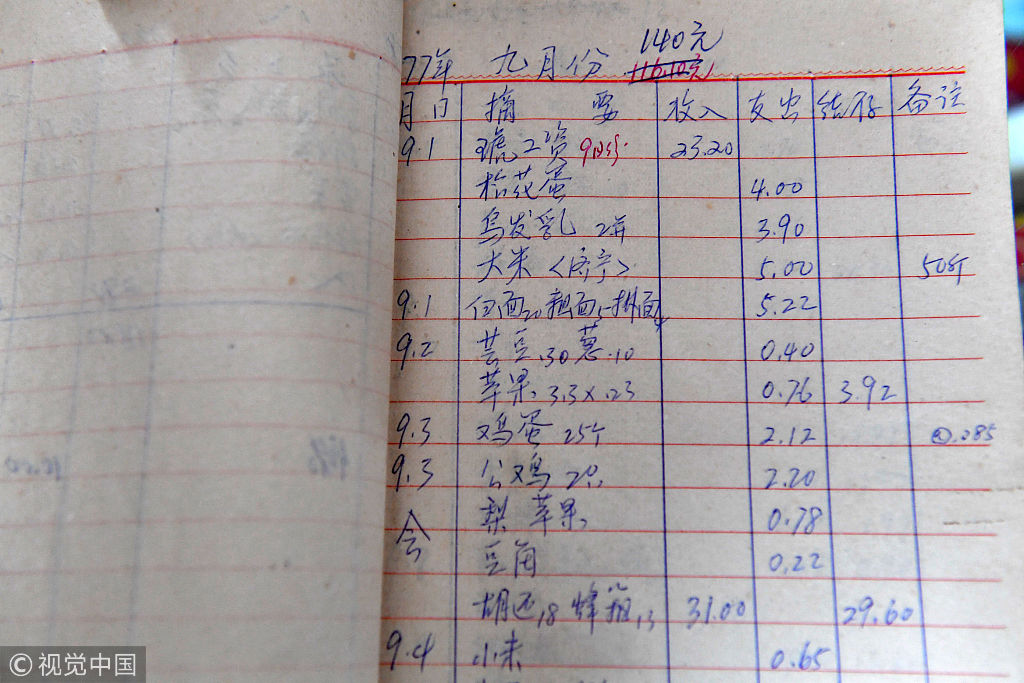 140元
77年 九月份 116.10元
月日 摘要 收入 支出 结存 备注
9.1 琥工资 9月份 23.20
桔花蛋 4.00
乌发乳 2瓶 3.90
大米 5.00 50斤
9.1 白面20 粗面5 挂面4 5.22
9.2 芸豆.30 葱.10 0.40
苹果 3.3×.23 0.76 3.92
9.3 鸡蛋 25个 2.12 @.085
9.3 公鸡 2只 2.20
会 梨 苹果 0.78
豆角 0.22
胡还18 蜂箱13 31.00 29.60
9.4 小米 0.65
©视觉中国